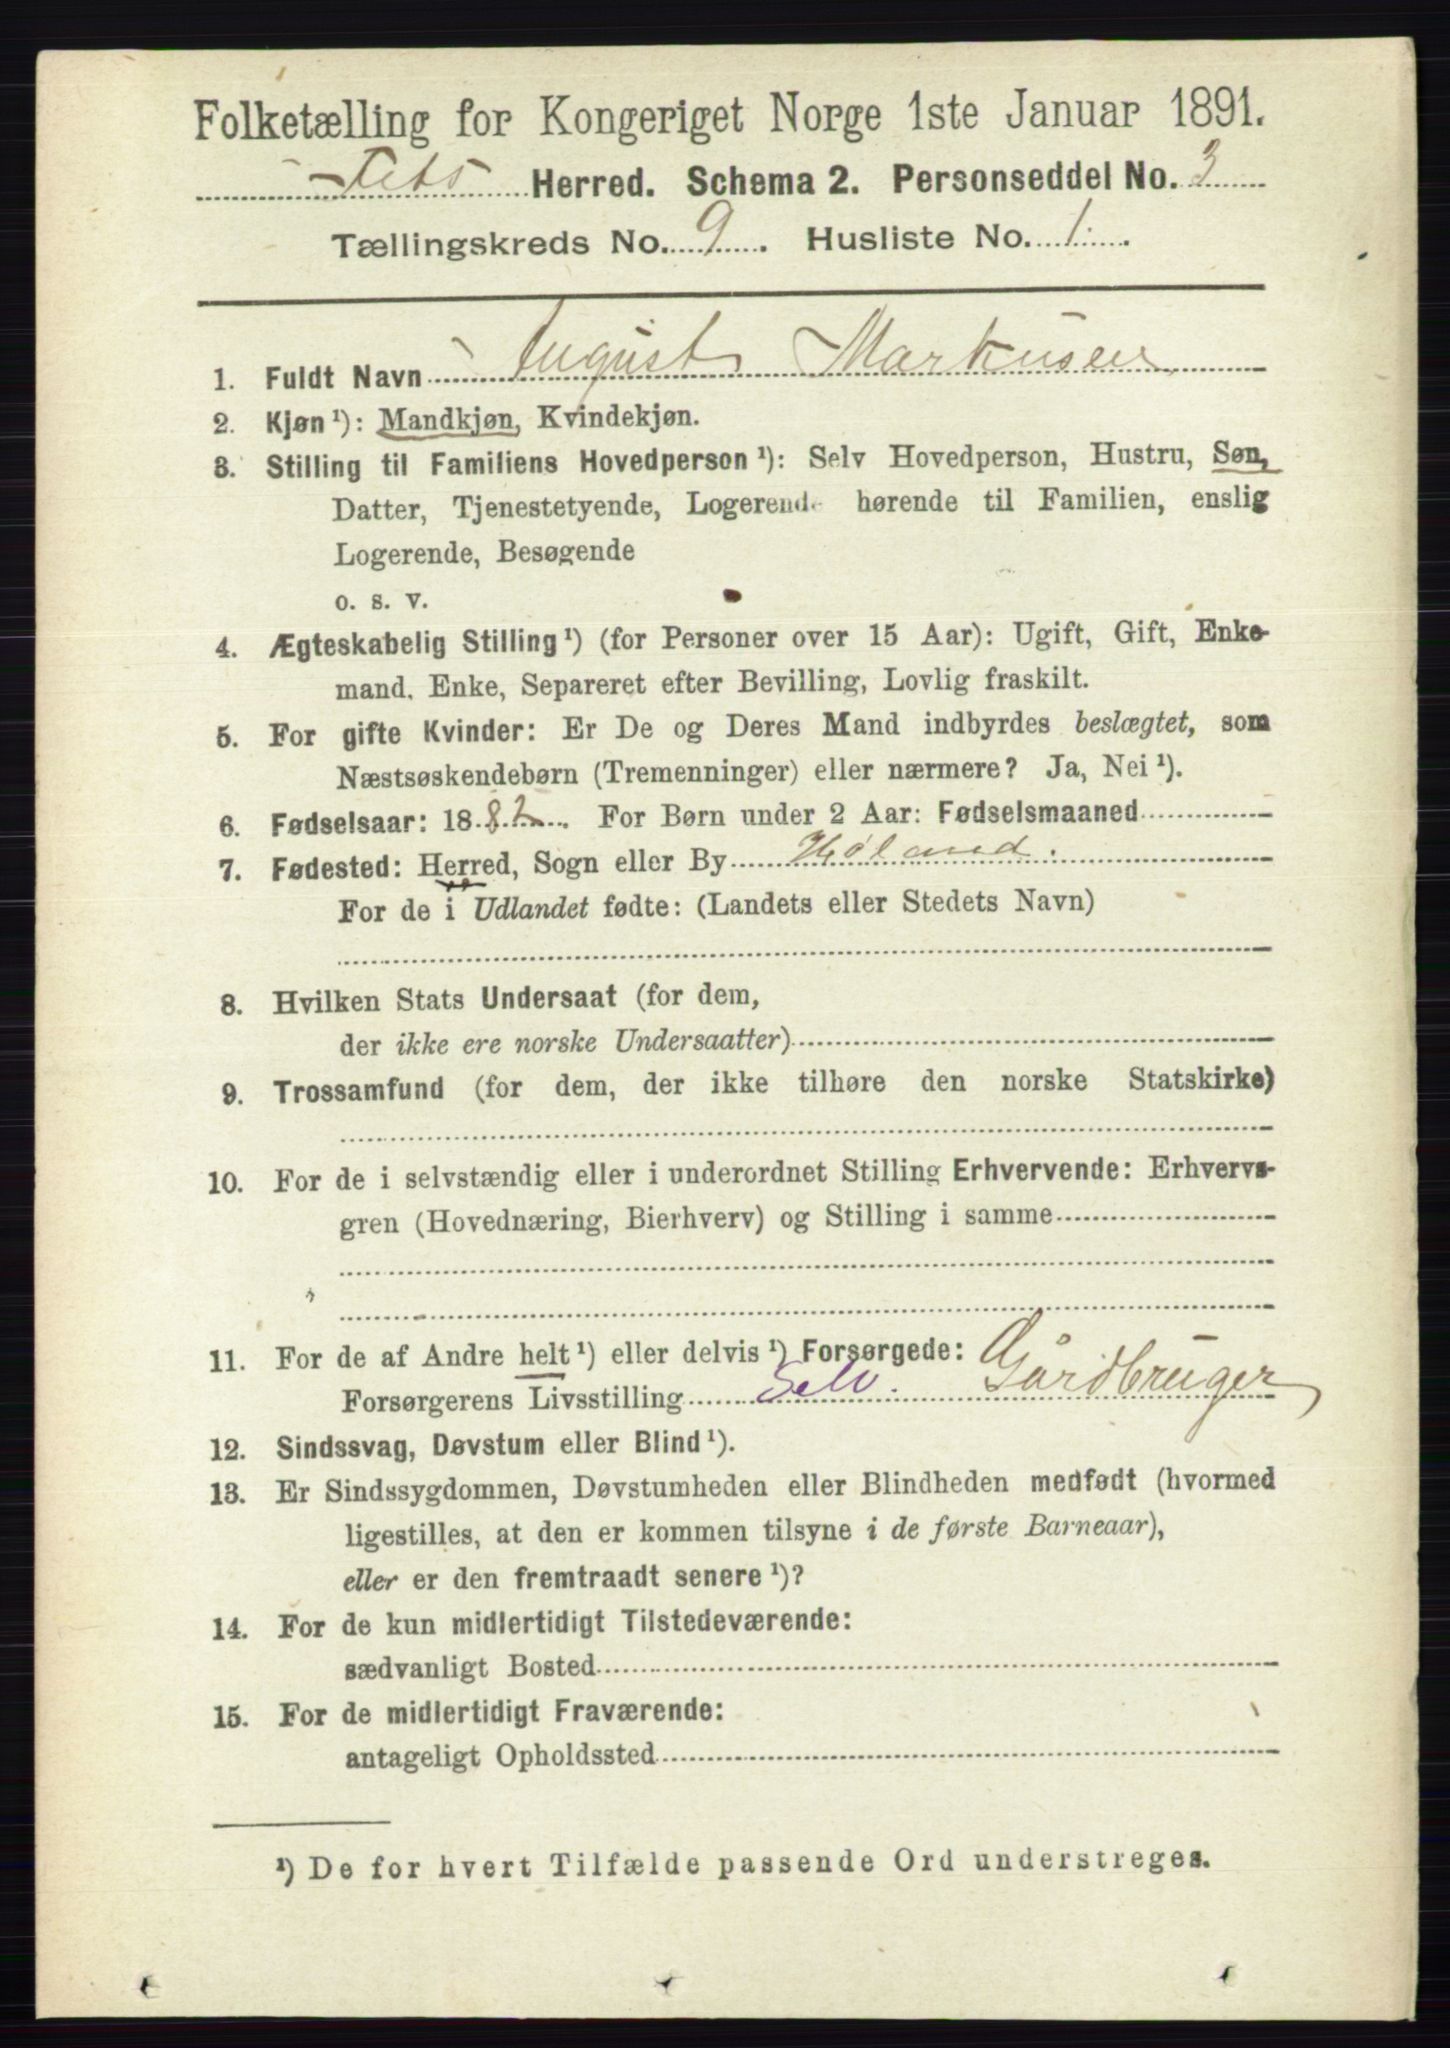 Folketælling for Kongeriget Norge 1ste Januar 1891.
Fets Herred. Schema 2. Personseddel No. 3
Tællingskreds No. 9. Husliste No. 1.
1. Fuldt Navn August Markusen
2. Kjøn¹): Mandkjøn, Kvindekjøn.
3. Stilling til Familiens Hovedperson¹): Selv Hovedperson, Hustru, Søn,
Datter, Tjenestetyende, Logerende hørende til Familien, enslig
Logerende, Besøgende
o. s. v.
4. Ægteskabelig Stilling¹) (for Personer over 15 Aar): Ugift, Gift, Enke-
mand, Enke, Separeret efter Bevilling, Lovlig fraskilt.
5. For gifte Kvinder: Er De og Deres Mand indbyrdes beslægtet, som
Næstsøskendebørn (Tremenninger) eller nærmere? Ja, Nei¹).
6. Fødselsaar: 1882. For Børn under 2 Aar: Fødselsmaaned
7. Fødested: Herred, Sogn eller By Høland.
For de i Udlandet fødte: (Landets eller Stedets Navn)
8. Hvilken Stats Undersaat (for dem,
der ikke ere norske Undersaatter)
9. Trossamfund (for dem, der ikke tilhøre den norske Statskirke)
10. For de i selvstændig eller i underordnet Stilling Erhvervende: Erhvervs-
gren (Hovednæring, Bierhverv) og Stilling i samme
11. For de af Andre helt¹) eller delvis¹) Forsørgede:
Forsørgerens Livsstilling Selv. Gårdbruger
12. Sindssvag, Døvstum eller Blind¹).
13. Er Sindssygdommen, Døvstumheden eller Blindheden medfødt (hvormed
ligestilles, at den er kommen tilsyne i de første Barneaar),
eller er den fremtraadt senere¹)?
14. For de kun midlertidigt Tilstedeværende:
sædvanligt Bosted
15. For de midlertidigt Fraværende:
antageligt Opholdssted
¹) De for hvert Tilfælde passende Ord understreges.